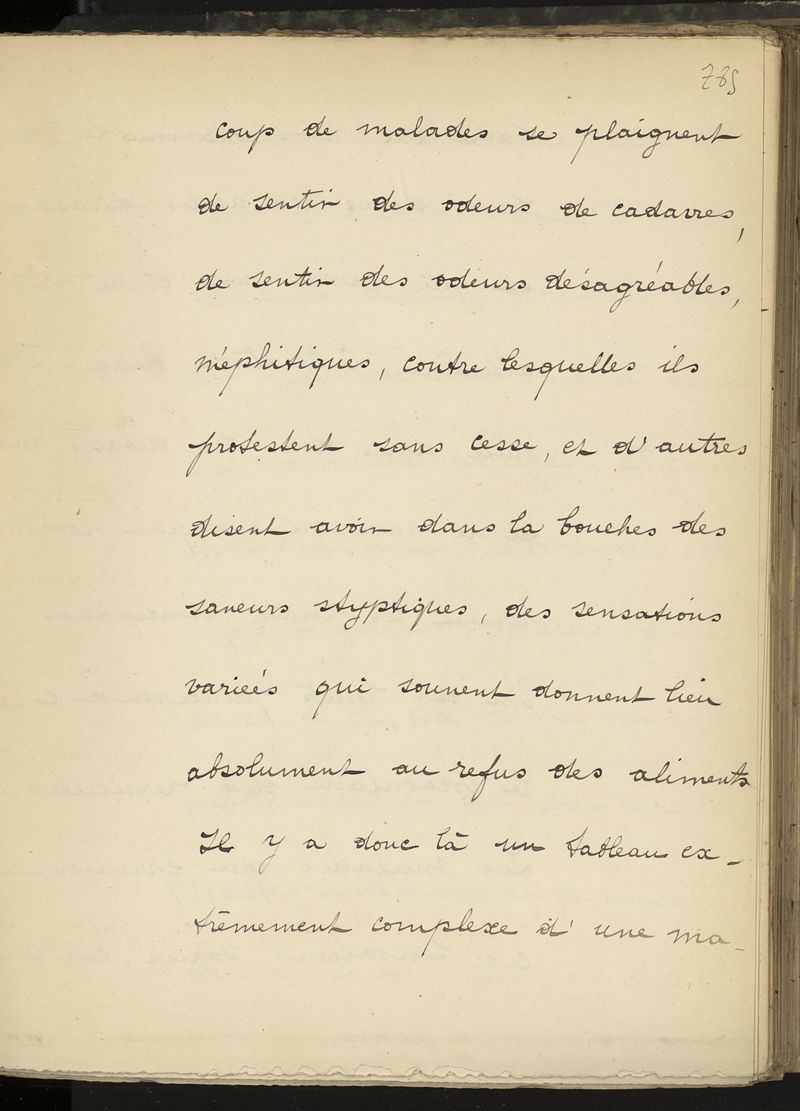 785
coup de malades se plaignent
de sentir des odeurs de cadavres,
de sentir des odeurs désagréables,
méphitiques, contre lesquelles ils
protestent sans cesse, et d'autres
disent avoir dans la bouches des
saveurs styptiques, des sensations
varieés qui souvent donnent lieu
absolument au refus des aliments
Il y a donc là un tableau ex-
trêmement complexe d'une ma-